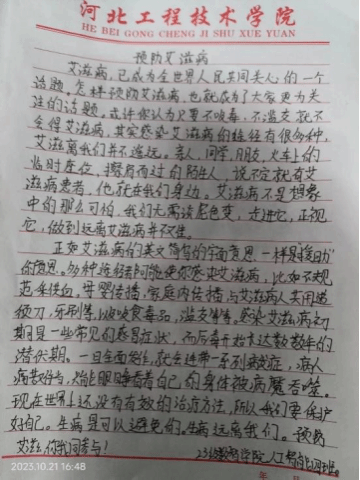 河北工程技术学院
HE BEI GONG CHENG JI SHU XUE YUAN
预防艾滋病
艾滋病,已成为全世界人民共同关心的一个
话题。怎样预防艾滋病,也就成为了大家更为关
注的话题。或许你认为只要不吸毒,不滥交就不
会得艾滋病,其实感染艾滋病的途径有很多种,
艾滋离我们并不遥远。亲人,同学,朋友,火车上的
临时座位,擦肩而过的陌生人,说不定就有艾
滋病患者,他就在我们身边。艾滋病不是想象
中的那么可怕,我们无需谈 色变,走进它,正视
它,做到远离艾滋病并不难。
正如艾滋病的英文简写的字面意思,一样是援助
的意思。多种途经都可能使你感染艾滋病,比如不规
范采供血,母婴传播,家庭内传播与艾滋病人共用剃
须刀,牙刷等,比吸食毒品,滥交等等。感染艾滋病初
期是一些常见的感冒症状,而后再 数年的
潜伏期。一旦全面发作,就会连带一系列并发症,病人
病 ,只能眼睁睁看着自己的身体被病魔吞噬。
现在世界上还没有有效的治疗方法,所以我们要保护
好自己。生病是可以避免的,生病远离我们。预防
艾滋,你我同参与!
学院人工智能
2023.10.21 16:48
年 月